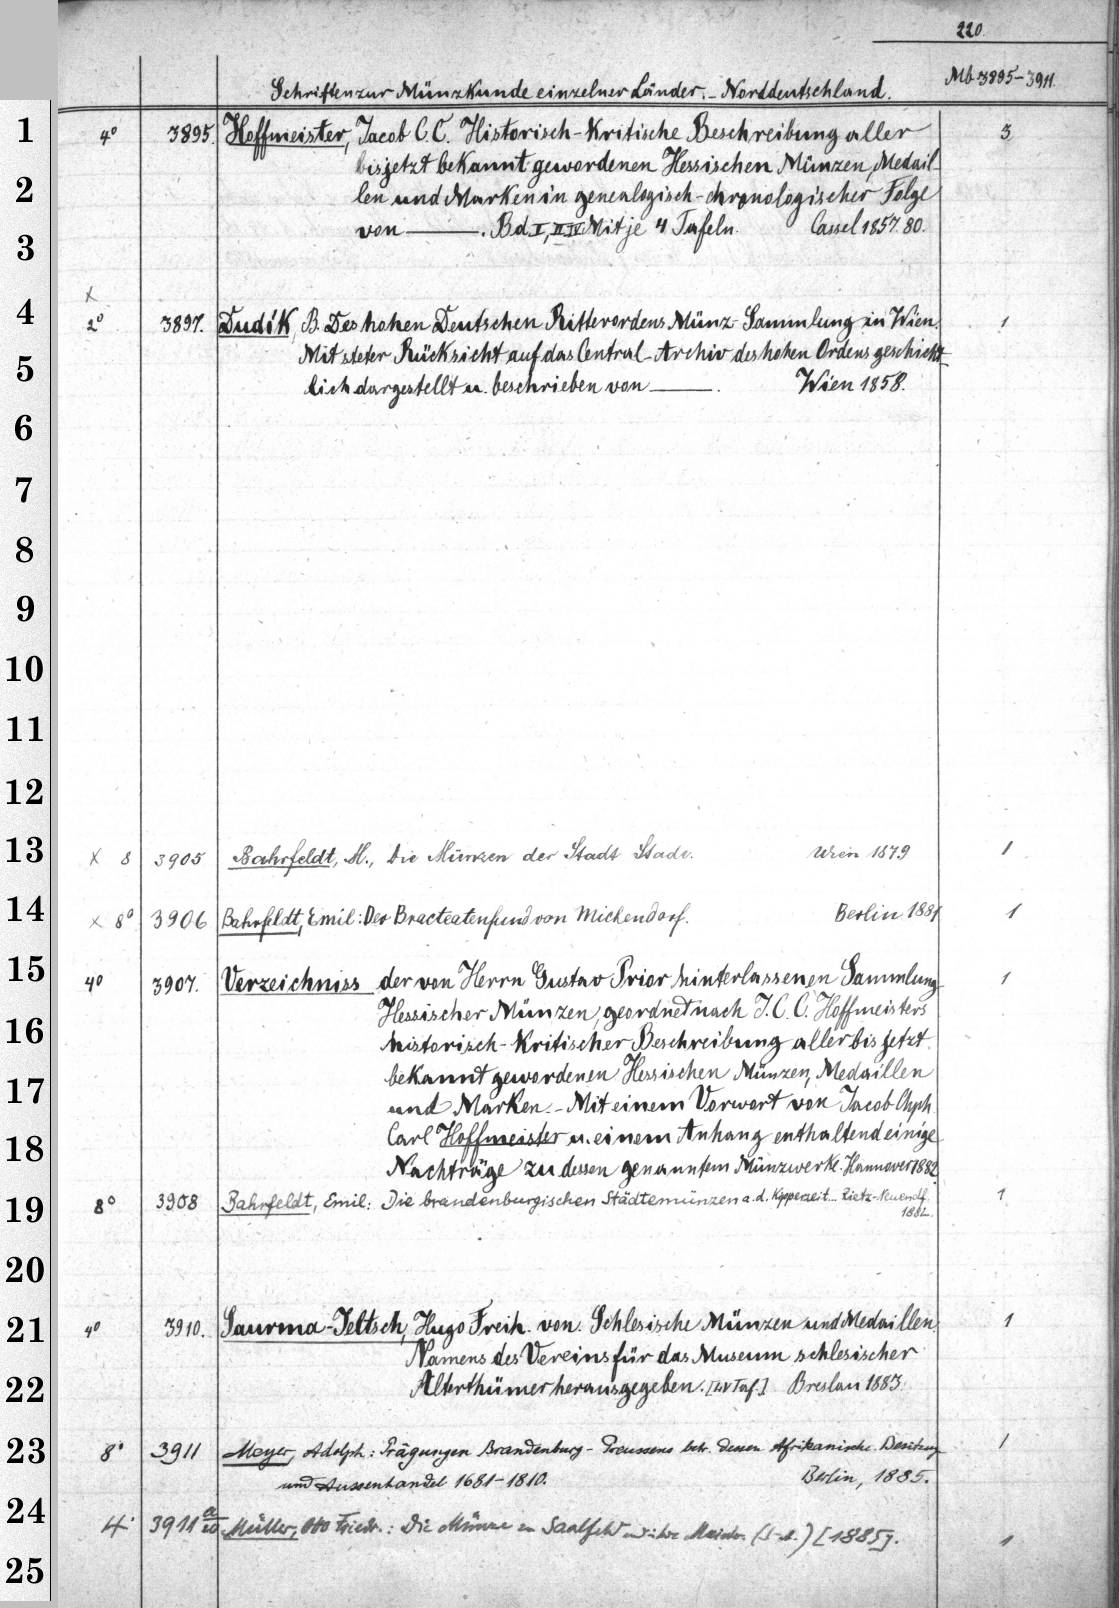 220.
Schriften zur Münzkunde einzelner Länder. - Norddeutschland. Mb 3895-3911.
1 4° 3895. Hoffmeister, Jacob C. C. Historisch-kritische Beschreibung aller 3
bis jetzt bekannt gewordenen Hessischen Münzen, Medail-
2 len und Marken in genealogisch-chronologischer Folge
3 von ———. Bd. I, II IV Mit je 4 Tafeln. Cassel 1857. 80.
x
4 2° 3897. Dudík, B. Des hohen Deutschen Ritterordens Münz-Sammlung in Wien. 1
5 Mit steter Rücksicht auf das Central-Archiv des hohen Ordens geschicht-
lich dargestellt u. beschrieben von ———. Wien 1858.
6
7
8
9
10
11
12
13 x 8 3905 Bahrfeldt, M., Die Münzen der Stadt Stade. Wien 1879 1
14 x 8° 3906 Bahrfeldt, Emil: Der Bracteatenfund von Michendorf. Berlin 1881 1
15 4° 3907. Verzeichniss der von Herrn Gustav Prior hinterlassenen Sammlung 1
Hessischer Münzen, geordnet nach J. C. C. Hoffmeisters
16 historisch-kritischer Beschreibung aller bis jetzt
bekannt gewordenen Hessischen Münzen, Medaillen
17 und Marken. - Mit einem Vorwort von Jacob Chph.
18 Carl Hoffmeister u. einem Anhang enthaltend einige
Nachträge zu dessen genanntem Münzwerke. Hannover 1882.
19 8° 3908 Bahrfeldt, Emil: Die brandenburgischen Städtemünzen a. d. Kipperzeit... Rietz-Neuendf. 1
1882.
20
21 4° 3910. Saurma-Jeltsch, Hugo Freih. von. Schlesische Münzen und Medaillen. 1
Namens des Vereins für das Museum schlesischer
22 Alterthümer herausgegeben. [LV Taf.] Breslau 1883.
23 8° 3911 Meyer, Adolph: Prägungen Brandenburg-Preussens betr. dessen Afrikanische Besitzung 1
und Aussenhandel 1681-1810. Berlin, 1885.
24 4° 3911 a Müller, Otto Friedr.: Die Münze in Saalfeld und ihre (S.-A.) [1885]. 1
25